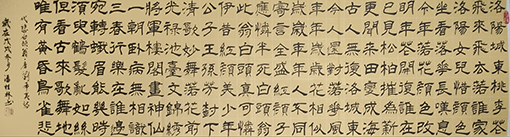 洛陽城東桃李花
飛來飛去落誰家
洛陽女兒惜顏色
坐看落花長嘆息
今年花落顏色改
明年花開復誰在
已見松柏摧為薪
更聞桑田變成海
古人無復洛城東
今人還對落花風
年年歲歲花相似
歲歲年年人不同
寄言全盛紅顏子
應憐半死白頭翁
此翁白頭真可憐
伊昔紅顏美少年
公子王孫芳樹下
清歌妙舞落花前
光祿池臺文錦繡
將軍樓閣畫神仙
一朝臥病無相識
三春行樂在誰邊
宛轉蛾眉能幾時
須臾鶴髮亂如絲
但看古來歌舞地
唯有黃昏鳥雀悲
代悲白頭翁 唐 劉希夷
歲在戊戌